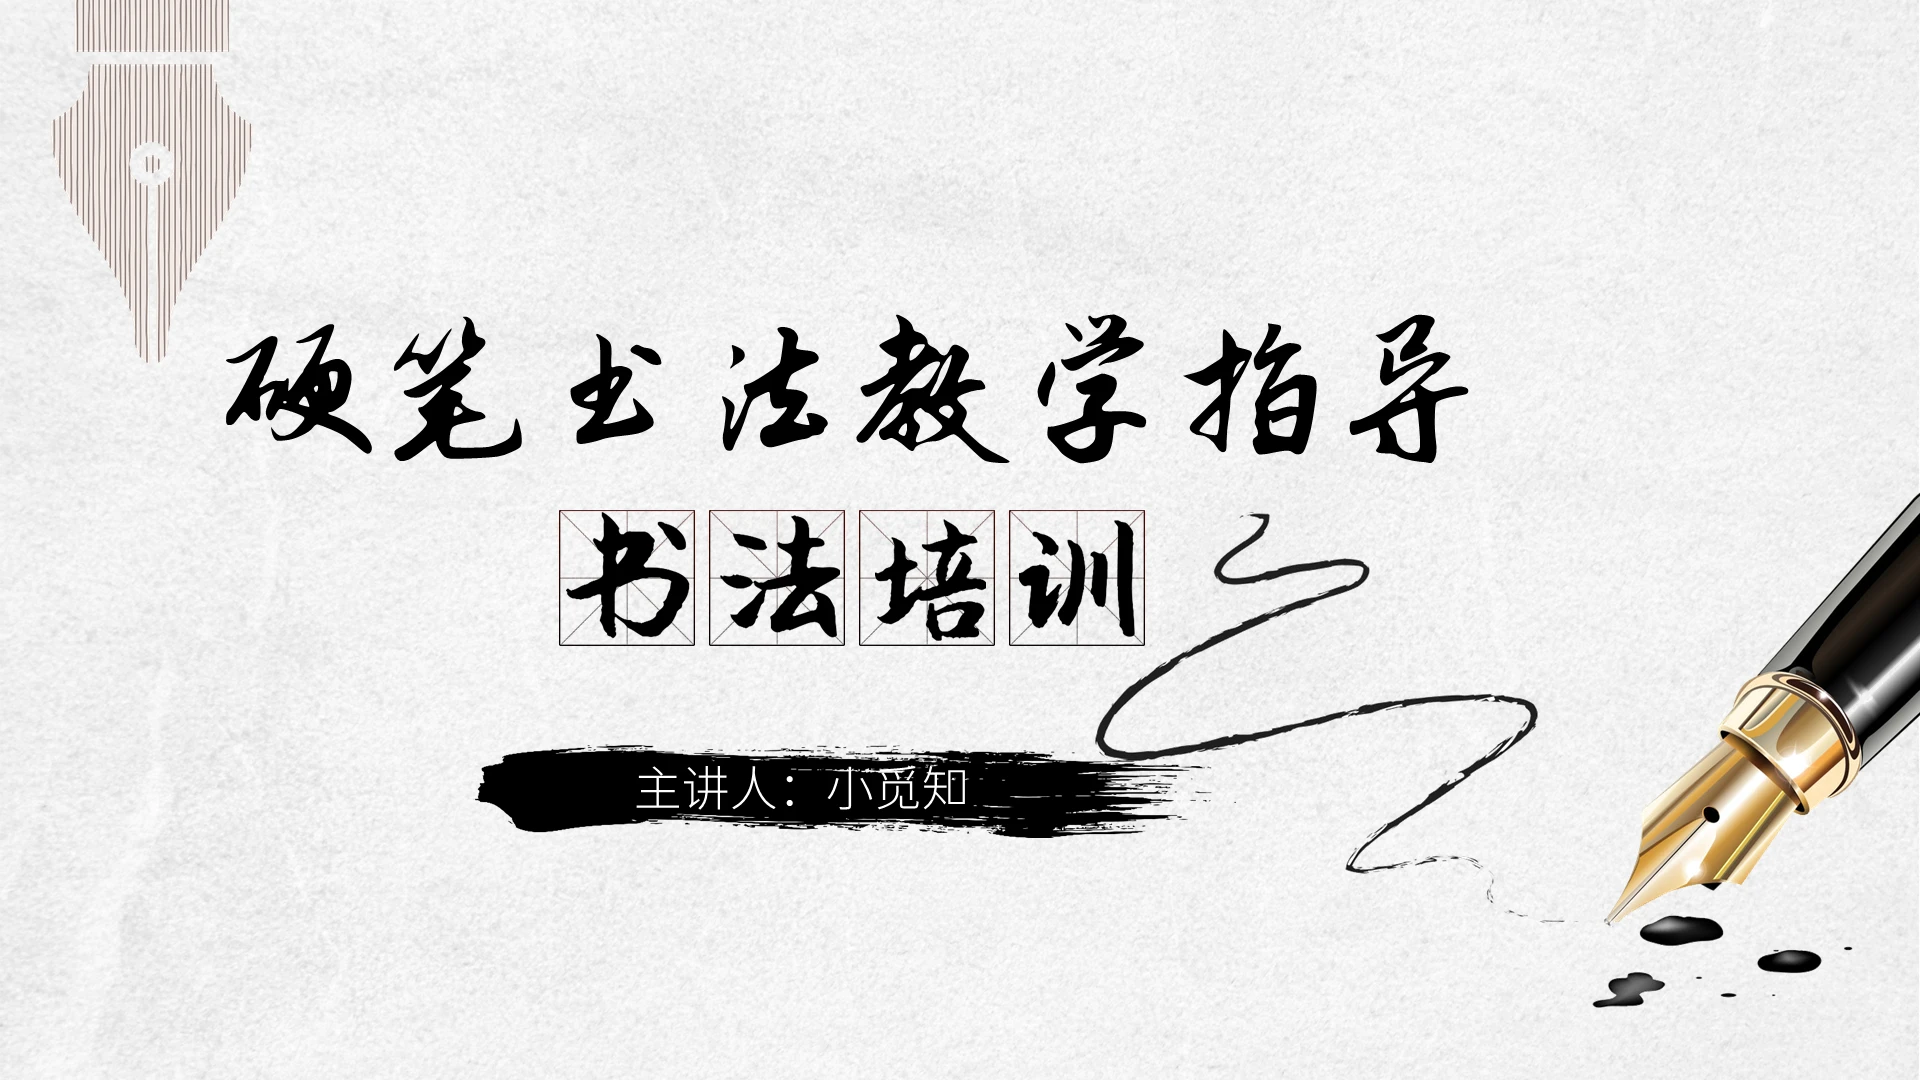 硬笔书法教学指导
书法培训
主讲人：小觅知